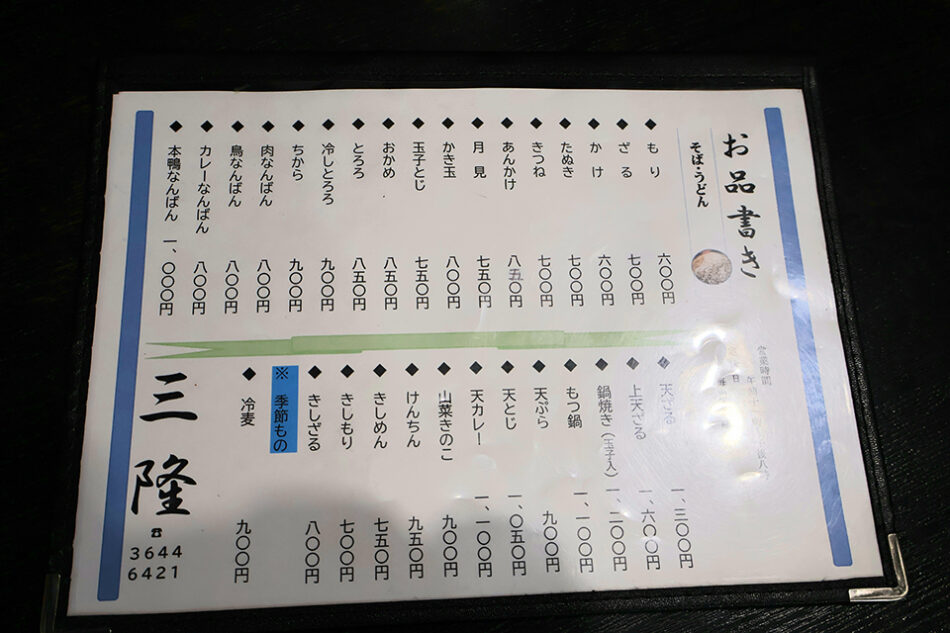 お品書き
そば・うどん
◆ もり 六〇〇円
◆ ざる 七〇〇円
◆ かけ 六〇〇円
◆ たぬき 七〇〇円
◆ きつね 七〇〇円
◆ あんかけ 八五〇円
◆ 月見 七五〇円
◆ かき玉 八〇〇円
◆ 玉子とじ 七五〇円
◆ おかめ 八五〇円
◆ とろろ 八五〇円
◆ 冷しとろろ 九〇〇円
◆ ちから 九〇〇円
◆ 肉なんばん 八〇〇円
◆ 鳥なんばん 八〇〇円
◆ カレーなんばん 八〇〇円
◆ 本鴨なんばん 一、〇〇〇円
営業時間
◆ 天ざる 一、三〇〇円
◆ 上天ざる 一、六〇〇円
◆ 鍋焼き(玉子入) 一、二〇〇円
◆ もつ鍋 一、一〇〇円
◆ 天ぷら 九〇〇円
◆ 天とじ 一、〇五〇円
◆ 天カレー 一、一〇〇円
◆ 山菜きのこ 九〇〇円
◆ けんちん 九五〇円
◆ きしめん 七五〇円
◆ きしもり 七〇〇円
◆ きしざる 八〇〇円
※ 季節もの
◆ 冷麦 九〇〇円
三隆
☎
3644
6421